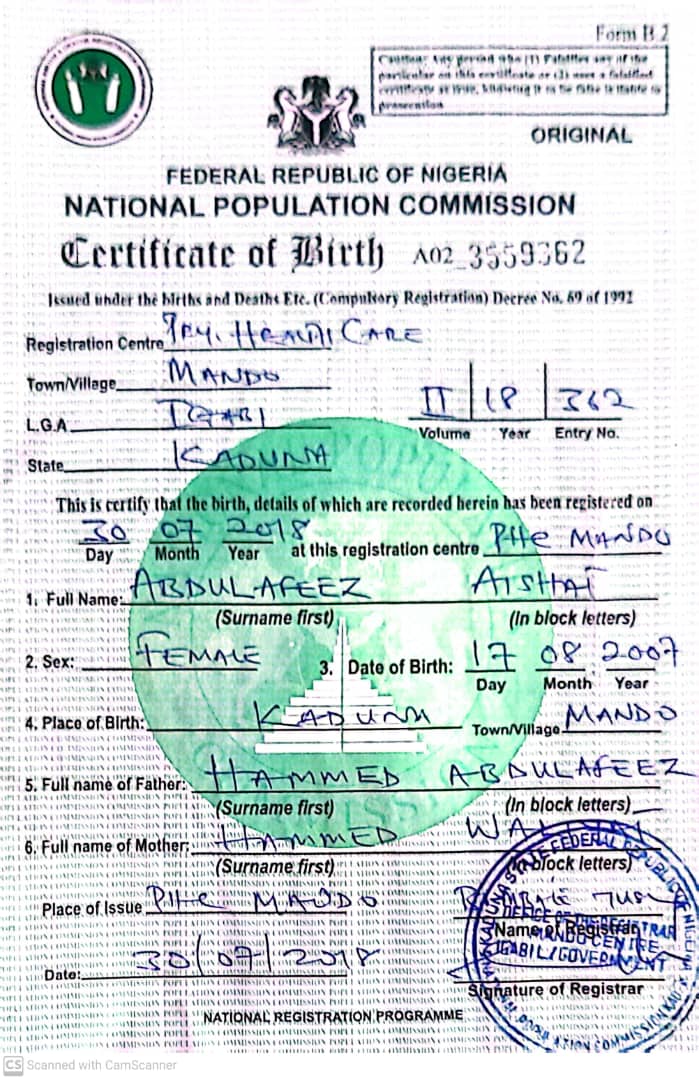 Form B.2
Caution: Any person who (1) Falsifies any of the
particular on this certificate or (2) uses a falsified
certificate as true, knowing it to be false is liable to
prosecution
ORIGINAL
FEDERAL REPUBLIC OF NIGERIA
NATIONAL POPULATION COMMISSION
Certificate of Birth A02 3559362
Issued under the births and Deaths Etc. (Compulsory Registration) Decree No. 69 of 1992
Registration Centre PRY. HEALTH CARE
Town/Village MANDO
L.G.A IGABI
II 18 362
Volume Year Entry No.
State KADUNA
This is certify that the birth, details of which are recorded herein has been registered on
30 07 2018 at this registration centre PHC MANDO
Day Month Year
1. Full Name: ABDULAFEEZ AISHAT
(Surname first) (In block letters)
2. Sex: FEMALE 3. Date of Birth: 17 08 2007
Day Month Year
4. Place of Birth: KADUNA Town/Village MANDO
5. Full name of Father: HAMMED ABDULAFEEZ
(Surname first) (In block letters)
6. Full name of Mother: HAMMED
(Surname first) block letters)
Place of Issue PHC MANDO
Name of Registrar
Date: 30/07/2018
Signature of Registrar
NATIONAL REGISTRATION PROGRAMME
OFFICE OF THE REGISTRAR
MANDO CENTRE
CS Scanned with CamScanner